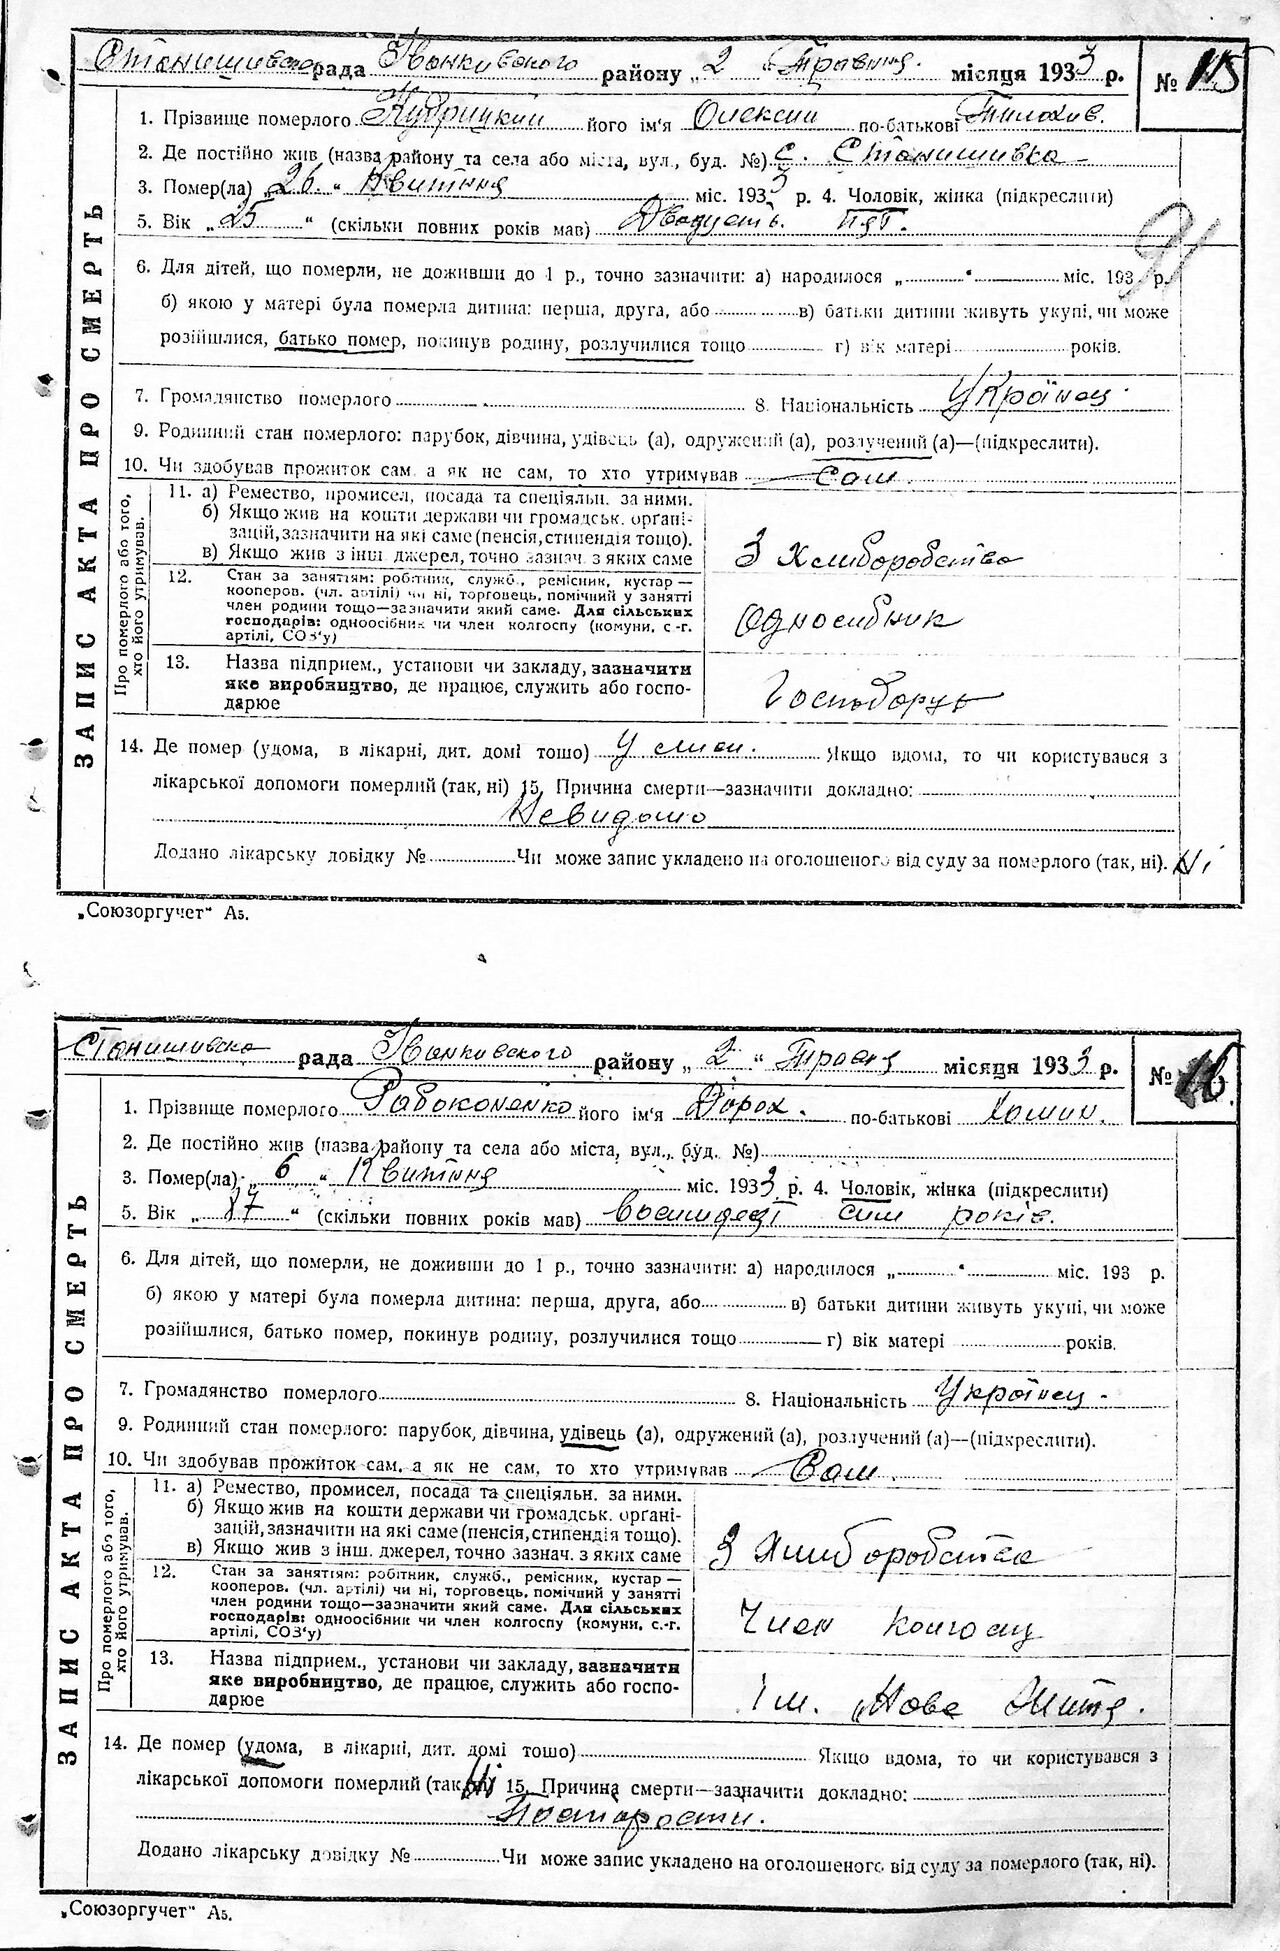 Станишивска рада Іванкивского району „ 2 “ Травня місяця 1933 р. № 115
1. Прізвище померлого Кудрицкий його ім'я Олексий по-батькові
2. Де постійно жив (назва району та села або міста, вул., буд. №) с. Станишивка
3. Помер(ла) „ 26 “ Квитня міс. 1933 р. 4. Чоловік, жінка (підкреслити)
5. Вік „ 25 “ (скільки повних років мав) Двадцеть. пят.
91
6. Для дітей, що померли, не доживши до 1 р., точно зазначити: а) народилося „ “ міс. 193 р.
б) якою у матері була померла дитина: перша, друга, або в) батьки дитини живуть укупі, чи може
розійшлися, батько помер, покинув родину, розлучилися тощо г) вік матері років.
7. Громадянство померлого 8. Національність Українец.
9. Родинний стан померлого: парубок, дівчина, удівець (а), одружений (а), розлучений (а)—(підкреслити).
10. Чи здобував прожиток сам. а як не сам, то хто утримував Сам.
ЗАПИС АКТА ПРО СМЕРТЬ
Про померлого або того,
хто його утримував.
11. а) Ремество, промисел, посада та спеціяльн. за ними.
б) Якщо жив на кошти держави чи громадськ. орґані-
зацій, зазначити на які саме (пенсія, стипендія тощо).
в) Якщо жив з інш. джерел, точно зазнач. з яких саме
З хлиборобства
12. Стан за занятіям: робітник, службі, ремісник, кустар —
кооперов. (чл. артілі) чи ні, торговець, помічний у занятті
член родини тощо—зазначити який саме. Для сільських
господарів: одноосібник чи член колгоспу (комуни, с.-г.
артілі, СОЗ'у)
Односибник
13. Назва підприєм., установи чи закладу, зазначити
яке виробництво, де працює, служить або госпо-
дарює
14. Де помер (удома, в лікарні, дит. домі тошо) Якщо вдома, то чи користувався з
лікарської допомоги померлий (так, ні) 15. Причина смерти—зазначити докладно:
Невидомо
Додано лікарську довідку № Чи може запис укладено на оголошеного від суду за померлого (так, ні). Ні
„Союзоргучет“ А5.
Станишивска рада Іванкивского району „ 2 “ Травня місяця 1933 р. № 116.
1. Прізвище померлого Рабоконенко його ім'я Дорох. по-батькові
2. Де постійно жив (назва району та села або міста, вул., буд. №)
3. Помер(ла) „ 6 “ Квитня міс. 1933 р. 4. Чоловік, жінка (підкреслити)
5. Вік „ 87 “ (скільки повних років мав) восимдесі сим років.
6. Для дітей, що померли, не доживши до 1 р., точно зазначити: а) народилося „ “ міс. 193 р.
б) якою у матері була померла дитина: перша, друга, або в) батьки дитини живуть укупі, чи може
розійшлися, батько помер, покинув родину, розлучилися тощо г) вік матері років.
7. Громадянство померлого 8. Національність Українец.
9. Родинний стан померлого: парубок, дівчина, удівець (а), одружений (а), розлучений (а)—(підкреслити).
10. Чи здобував прожиток сам. а як не сам, то хто утримував Сам.
ЗАПИС АКТА ПРО СМЕРТЬ
Про померлого або того,
хто його утримував.
11. а) Ремество, промисел, посада та спеціяльн. за ними.
б) Якщо жив на кошти держави чи громадськ. орґані-
зацій, зазначити на які саме (пенсія, стипендія тощо).
в) Якщо жив з інш. джерел, точно зазнач. з яких саме
З хлиборобства
12. Стан за занятіям: робітник, служб., ремісник, кустар —
кооперов. (чл. артілі) чи ні, торговець, помічний у занятті
член родини тощо—зазначити який саме. Для сільських
господарів: одноосібник чи член колгоспу (комуни, с.-г.
артілі, СОЗ'у)
Член колгосп
13. Назва підприєм., установи чи закладу, зазначити
яке виробництво, де працює, служить або госпо-
дарює
ім. Нове Життя.
14. Де помер (удома, в лікарні, дит. домі тошо) Якщо вдома, то чи користувався з
лікарської допомоги померлий (так, ні) 15. Причина смерти—зазначити докладно:
Постарости.
Додано лікарську довідку № Чи може запис укладено на оголошеного від суду за померлого (так, ні).
„Союзоргучет“ А5.